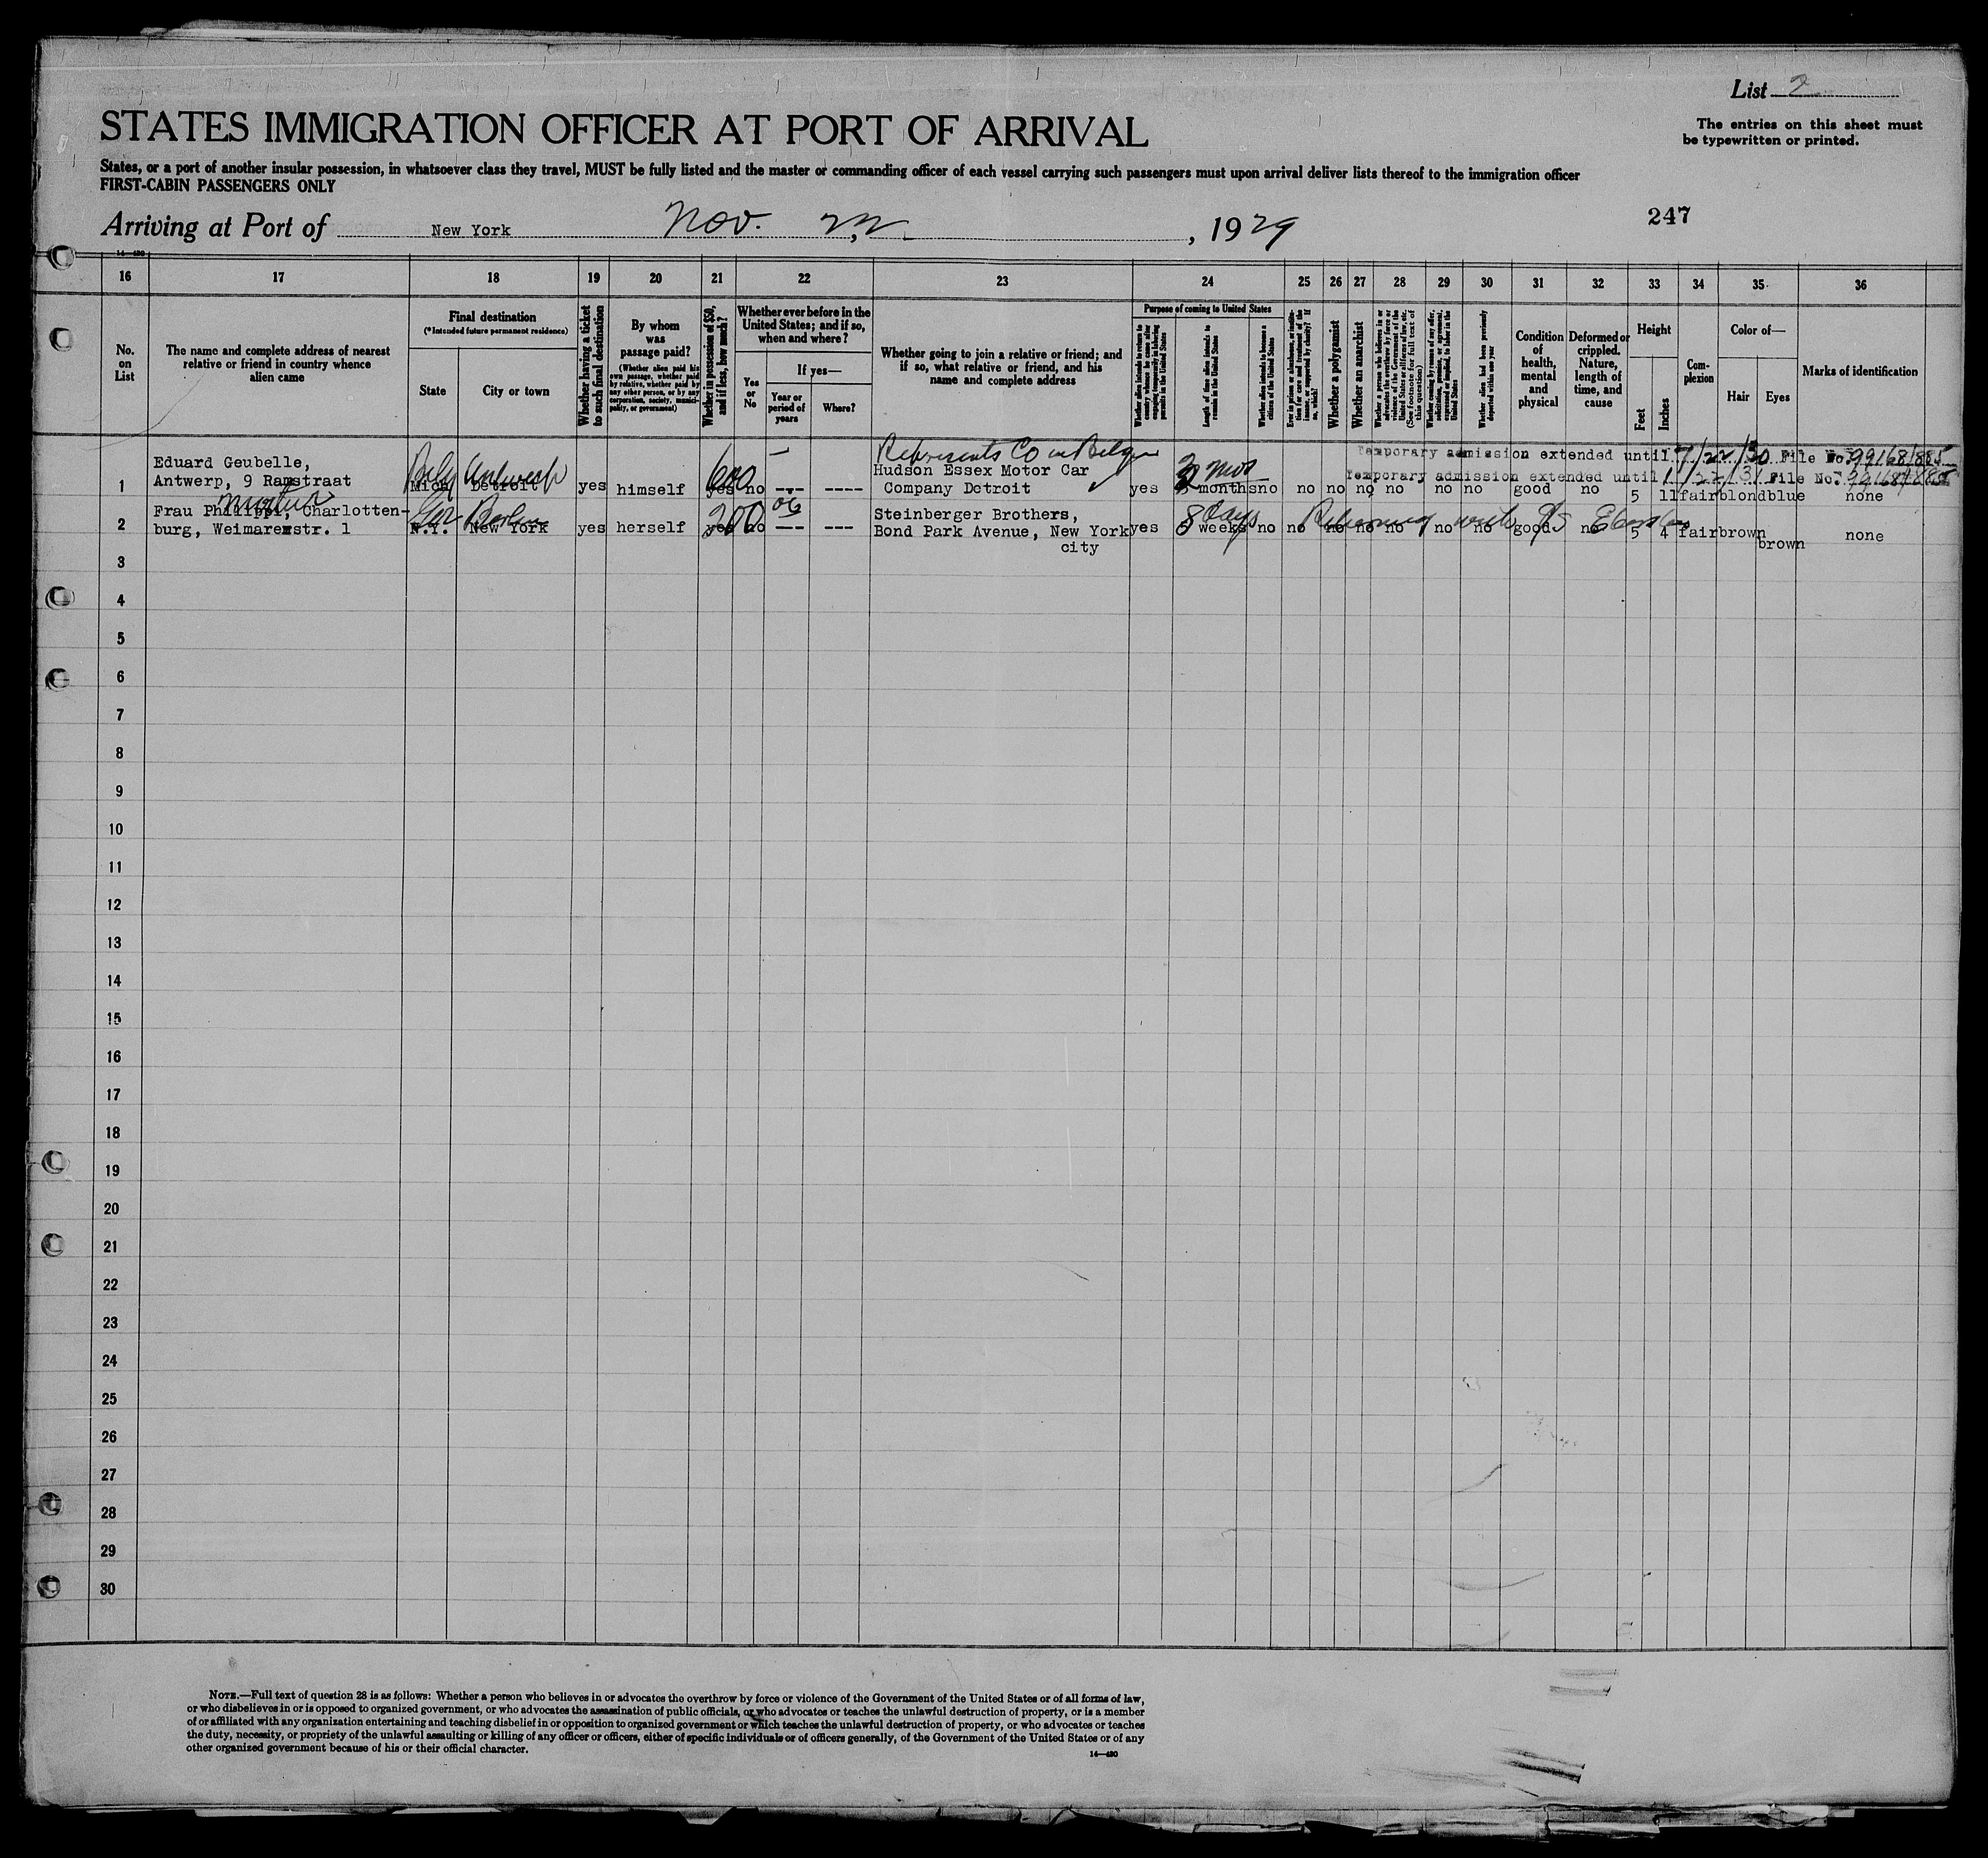 List 2
STATES IMMIGRATION OFFICER AT PORT OF ARRIVAL
The entries on this sheet must
be typewritten or printed.
States, or a port of another insular possession, in whatsoever class they travel, MUST be fully listed and the master or commanding officer of each vessel carrying such passengers must upon arrival deliver lists thereof to the immigration officer
FIRST-CABIN PASSENGERS ONLY
Arriving at Port of New York Nov. 22, 1929
247
14—480
16 17 18 19 20 21 22 23 24 25 26 27 28 29 30 31 32 33 34 35 36
No. on List
The name and complete address of nearest relative or friend in country whence alien came
Final destination
(*Intended future permanent residence)
State
City or town
Whether having a ticket to such final destination
By whom was passage paid?
(Whether alien paid his own passage, whether paid by relative, whether paid by any other person, or by any corporation, society, municipality, or government)
Whether in possession of $50, and if less, how much?
Whether ever before in the United States; and if so, when and where?
Yes or No
If yes—
Year or period of years
Where?
Whether going to join a relative or friend; and if so, what relative or friend, and his name and complete address
Purpose of coming to United States
Length of time alien intends to remain in the United States
Whether alien intends to become a citizen of the United States
Whether a polygamist
Whether an anarchist
Whether alien had been previously deported within one year
Condition of health, mental and physical
Deformed or crippled. Nature, length of time, and cause
Height
Feet
Inches
Complexion
Color of—
Hair
Eyes
Marks of identification
Represents Co in Belgium
Temporary admission extended until 7/22/30 File No. 99168/885
Eduard Geubelle,
Hudson Essex Motor Car
Temporary admission extended until 1/22/31 File No. 99168/885
Antwerp, 9 Ramstraat
Belg Antwerp 600 3 mos
1 Mich Detroit yes himself yes no --- ---- Company Detroit yes months no no no no no no no good no 5 11 fair blond blue none
mother
Frau Philippi, Charlotten-
Ger Berlin 200 06
Steinberger Brothers,
8 days
2 burg, Weimarerstr. 1 N.Y. New York yes herself yes no --- --- Bond Park Avenue, New York yes 8 weeks no no no no no no no good no 5 4 fair brown brown none
city
3
4
5
6
7
8
9
10
11
12
13
14
15
16
17
18
19
20
21
22
23
24
25
26
27
28
29
30
NOTE.—Full text of question 28 is as follows: Whether a person who believes in or advocates the overthrow by force or violence of the Government of the United States or of all forms of law,
or who disbelieves in or is opposed to organized government, or who advocates the assassination of public officials, or who advocates or teaches the unlawful destruction of property, or is a member
of or affiliated with any organization entertaining and teaching disbelief in or opposition to organized government or which teaches the unlawful destruction of property, or who advocates or teaches
the duty, necessity, or propriety of the unlawful assaulting or killing of any officer or officers, either of specific individuals or of officers generally, of the Government of the United States or of any
other organized government because of his or their official character.
14—480